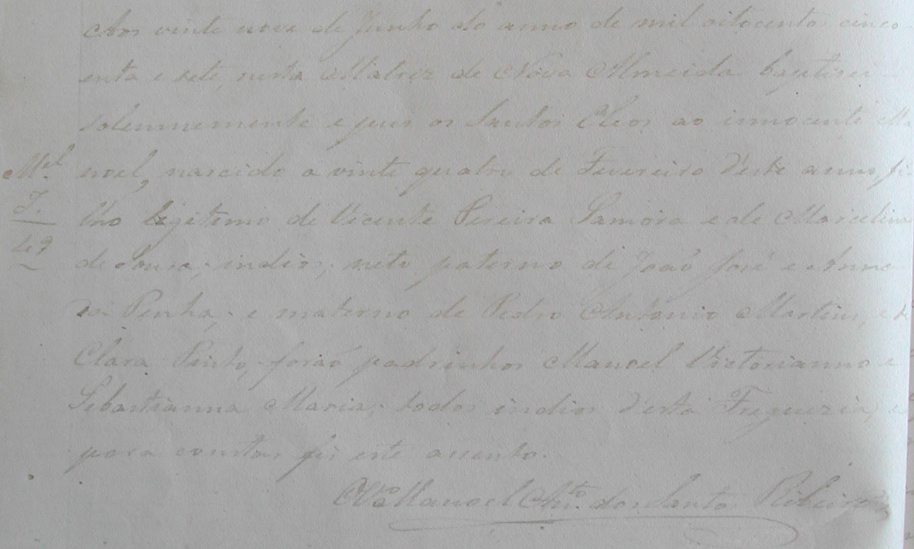 Aos vinte nove de Junho do anno de mil oitocentos cinco
enta e sete, nesta Matriz de Nova Almeida baptisei
solennemente e puz os Santos Oleos ao innocente Ma
Mel noel, nascido a vinte quatro de Fevereiro d'este anno, fi
I. lho legitimo de Vicente Pereira Samora e de Marcelina
49 de Sousa, indios; neto paterno de João José e Anna
da Penha; e materno de Pedro Antonio Martins, e
Clara Pinto, forão padrinhos Manoel Victorianno e
Sebastianna Maria; todos indios d'esta Freguezia, e
para constar fiz este assento.
O Vgo Manoel Anto. dos Santos Ribeiro